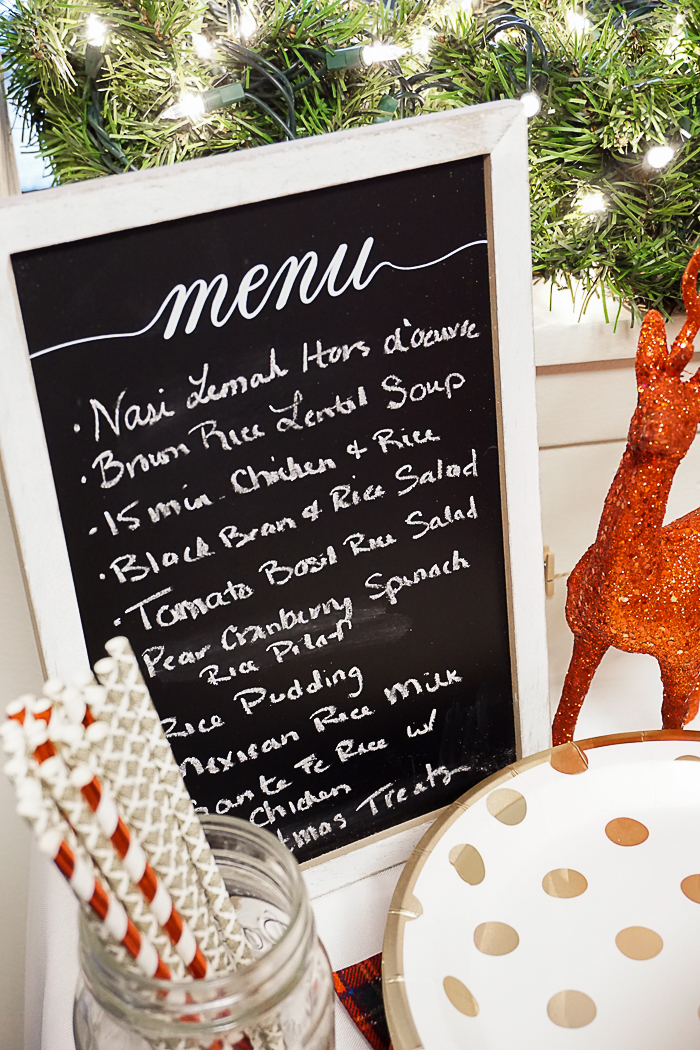 menu
· Nasi Lemah Hors d'oeuvre
· Brown Rice Lentil Soup
· 15 min Chicken & Rice
· Black Bean & Rice Salad
· Tomato Basil Rice Salad
Pear Cranberry Spinach
Rice Pilaf
Rice Pudding
Mexican Rice Milk
Sante Fe Rice w/
Chicken
tmas Treats